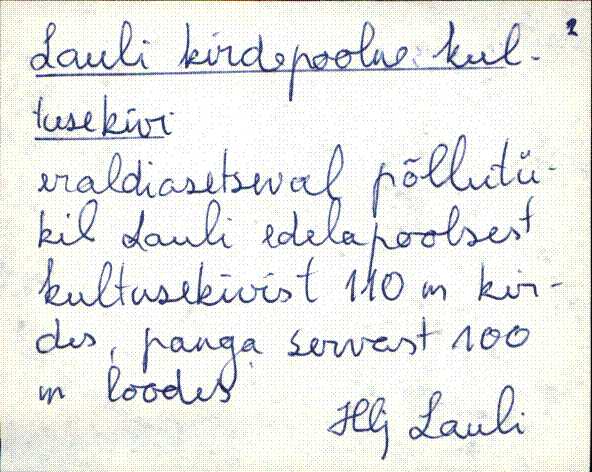 2
Lauli kirdepoolne kul-
tusekivi
eraldiasetseval põllutü-
kil Lauli edelapoolsest
kultusekivist 110 m kir-
des, panga servast 100
m loodes
Hlj Lauli